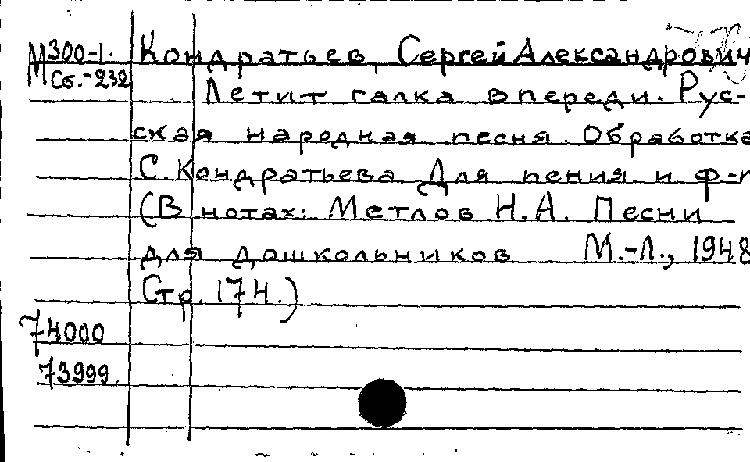 М300-1. Кондратьев, Сергей Александрович
Сб.-232 Летит галка впереди. Рус-
ская народная песня. Обработка
С. Кондратьева Для пения и ф-п
(В нотах: Метлов Н.А. Песни
для дошкольников М.-Л., 1948
Стр. 174.)
74000
73999.